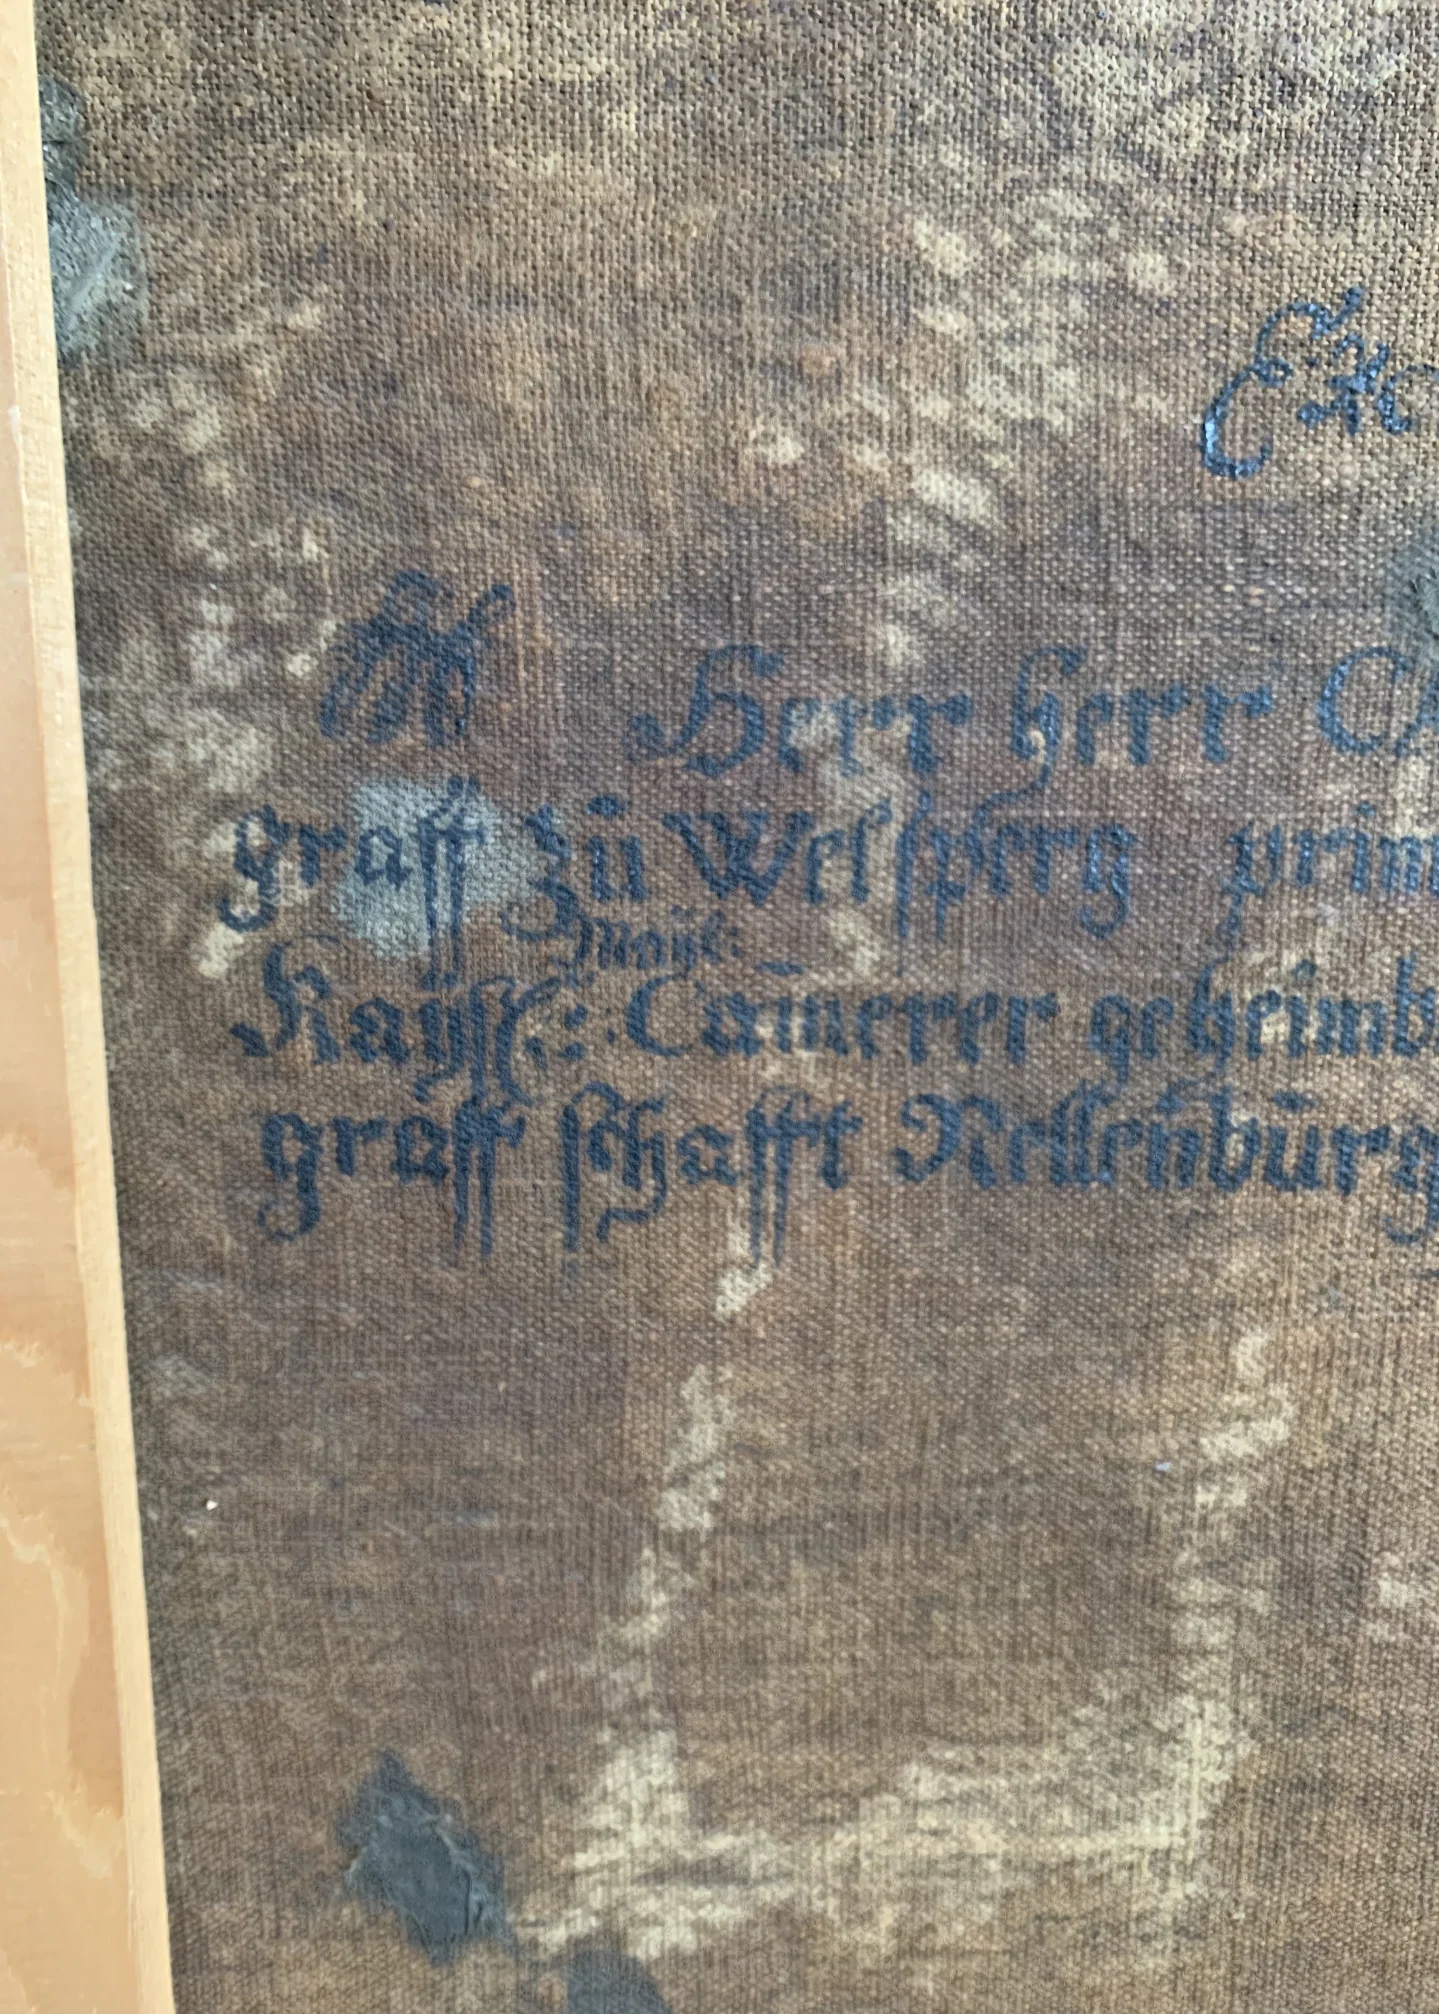 Exc
Herr herr C
graff zü Welsperg prim
Mayst:
Kayse: Cam̄erer geheimb
graff schafft Nellenbürg